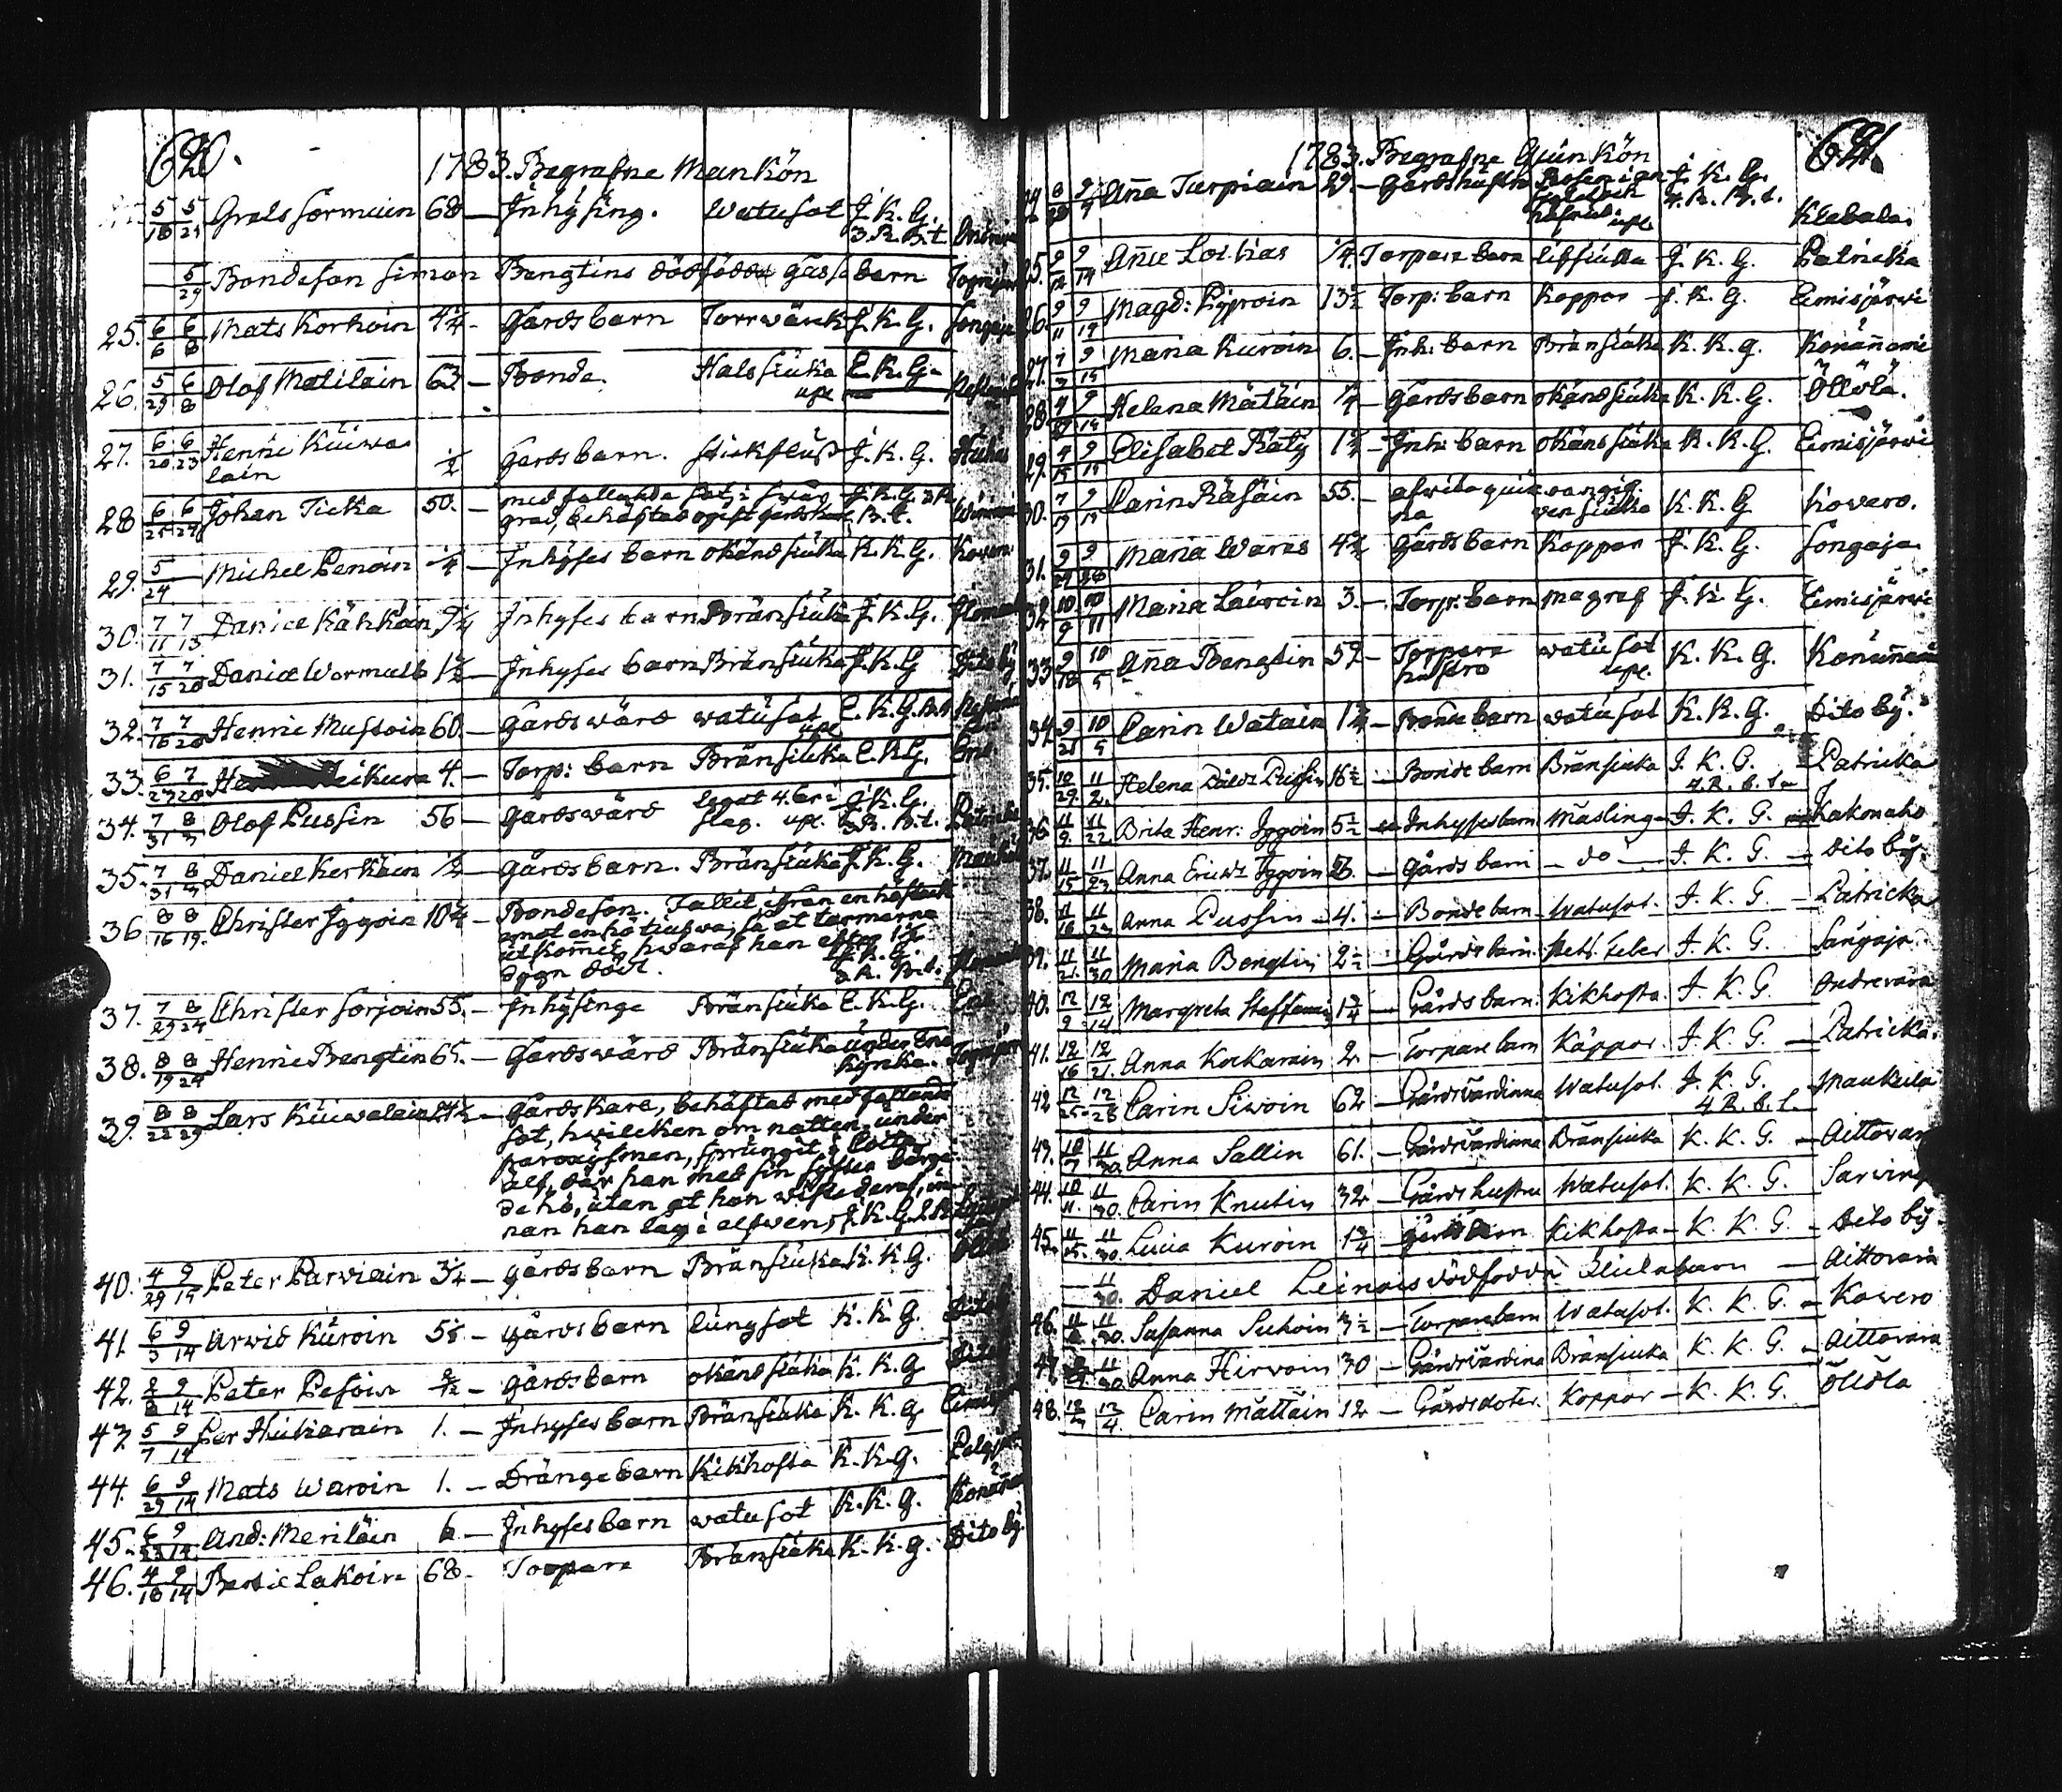 640.
1783. Begrafne Mankön
5/18 5/29 Grels Sormuin 68 — Inhysing. Watusot J. K. G. 3. R. B. t.
5/29 Bondeson Simon Bengtins dödfödde gosse barn
25. 6/6 6/8 Mats Korhoin 4 1/4 — Gårdsbarn Torrwärk J. K. G.
26. 5/29 6/8 Olof Matilain 63 — Bonde. Halssiuka E. K. G.
upl.
27. 6/20 6/23 Henric Kuiwa-
lain 1/2 Gårdsbarn. stickfluss J. K. G.
28 6/25 6/29 Johan Ticka 50. — med fallande sot, i swår J. K. G. 3 R.
grad, behäftad ogift gårdskarl B. t.
29. 5/24 Michel Penoin 1/4 — Inhyses barn okänd siuka K. K. G. Kowero
30. 7/11 7/13 Daniel Kähköin 9 1/4 Inhyses barn Bränsiuka J. K. G.
31. 7/15 7/20 Daniel Wormalb 1 1/2 — Inhyses barn Bränsiuka J. K. G Dito by
32. 7/16 7/20 Henric Mustoin 60. — Gårdswärd watusot E. K. G. B. t
upl.
33. 6/27 7/20 4. — Torp: barn Bränsiuka E. K. G. Eno.
34. 7/31 8/3 Olof Pussin 56 — Gårdswärd J. K. G.
slag. upl. 3 R. B. t.
35. 7/31 8/3 Daniel Kerkäin 1/2 — gårdsbarn. Bränsiuka J. K. G.
36 8/16 8/19. Christer Iggoin 10 3/4 — Bondeson. Fallit ifrån en höstack
emot en hötiufwa, så at tarmarna
utkommit, hwaraf han efter 1 1/2
dygn dödt. J. K. G.
3. R. B. t.
37. 7/29 8/24 Christer Sorjoin 55. — Inhysinge Bränsiuka E. K. G. Eno
38. 8/19 8/24 Henric Bengtin 65. — Gårdswärd Bränsiuka under Eno
Kyrcka.
39. 8/22 8/29 Lars Kuiwalain 24 1/2 — gårdskarl, behäftad med fallande
sot, hwilcken om natten, under
paroxysmen, sprungit i
elf, där han med sin syster bärga-
de hö, utan at hon wiste deraf, in-
nan han låg i elfwen, J. K. G.
40. 4/29 9/14 Peter Parwiain 3/4 — gårdsbarn Bränsiuka K. K. G.
41. 6/3 9/14 Arwid Kuroin 5 1/2 — gårdsbarn lungsot K. K. G. Dito by
42. 2/2 9/14 Peter Pesoin 8/12 — gårdsbarn okänd siuka K. K. G Dito
43. 5/7 9/14 Per Huikarain 1. — Inhyses barn Bränsiuka K. K. G.
44. 6/29 9/14 Mats Waroin 1. — Drängebarn Kikhosta K. K. G.
45. 6/23 9/14 And: Meriläin 6 — Inhyses barn watusot K. K. G.
46. 4/18 9/14 Bertil Lakoin 68 — Torpare Bränsiuka K. K. G. Dito by
641.
1783. Begrafne Quinkön
24 8/28 9/7 Anna Turpiain 29. — Gårdshustru J. K. G.
upl. 4. R. B. t. Klebala
25. 9/12 9/14 Anne Loikas 1/4. Torpare barn lifsiuka J. K. G. Patricka
26. 9/11 9/14 Magd: Pyroin 13 1/2 Torp: barn Koppor J. K. G. Eimisjärwi
27. 7/3 9/14 Maria Kuroin 6. — Inh: barn Bränsiuka K. K. G. Konännomi
28. 4/27 9/14 Helena Mätäin 1/4 — Gårdsbarn okänd siuka K. K. G. Öllölä.
29. 4/15 9/14 Elisabet Räty 1 1/4 — Inh: barn okänd siuka K. K. G. Eimisjärwi
30. 7/19 9/14 Carin Räsäin 55. — afwita quin-
na K. K. G Kowero.
31. 9/24 9/28 Maria Waras 4 1/2 gårdsbarn Koppor J. K. G. Songaja.
32 10/9 10/11 Maria Lauroin 3. — Torp: barn magref J. K. G. Eimisjärwi
33 9/18 10/5 Anna Bengtin 59 — Torpare watusot K. K. G. Konännomi
hustro upl.
34. 9/21 10/5 Carin Watain 1 3/4 — Bonde barn watusot K. K. G. Dito by.
35. 10/29. 11/2. Helena Pussin 16 1/2 — Bonde barn Bränsiuka J. K. G. Patricka
4. R. B. t.
36. 11/9. 11/22 Brita Henr: Iggoin 5 1/2 — Inhyses barn Mässling J. K. G. Kakonaho
37. 11/15 11/23 Anna Ericsdr Iggoin 26. — gårds barn — do — J. K. G. — Dito by.
38. 11/18. 11/23 Anna Pussin — 4. — Bonde barn Watusot. J. K. G — Patricka
39. 11/21. 11/30 Maria Bengtin 2 1/2 — Gårds barn. Het. Feber J. K. G. Sangaja
40. 12/9 12/14 Margreta Steffanin 1 3/4 — Gårds barn. Kikhosta. J. K. G. Ondrevara
41. 12/16 12/21. Anna Kockarain 2. — Torpare barn Käppor. J. K. G — Patricka.
42 12/25. 12/28 Carin Siwoin 62 — Gårdsvärdinna Watusot. J. K. G. Maukula
4 R. B. t.
43. 10/7 11/30. Anna Sallin 61. — Gårdsvärdinna Bränsiuka K. K. G. — Aittovara
44. 10/11. 11/30. Carin Knutin 32 — Gårds hustru Watusot. K. K. G.
45. 11/25. 11/30. Lucia Kuroin 1 3/4 — gårds barn Kikhosta — K. K. G. — Dito by.
11/30. Daniel Leinois dödfödda flickebarn — Aittovara
46. 11/30. Susanna Sutoin 3 1/2 — Torpare barn Watusot. K. K. G. — Kowero
47. 11/30 Anna Hirvoin 30 — Gårdsvärdina Bränsiuka K. K. G. — Aittovara
48. 12/3 12/4. Carin Mättäin 12 — Gårdsdoter. Koppor — K. K. G. Öllölä